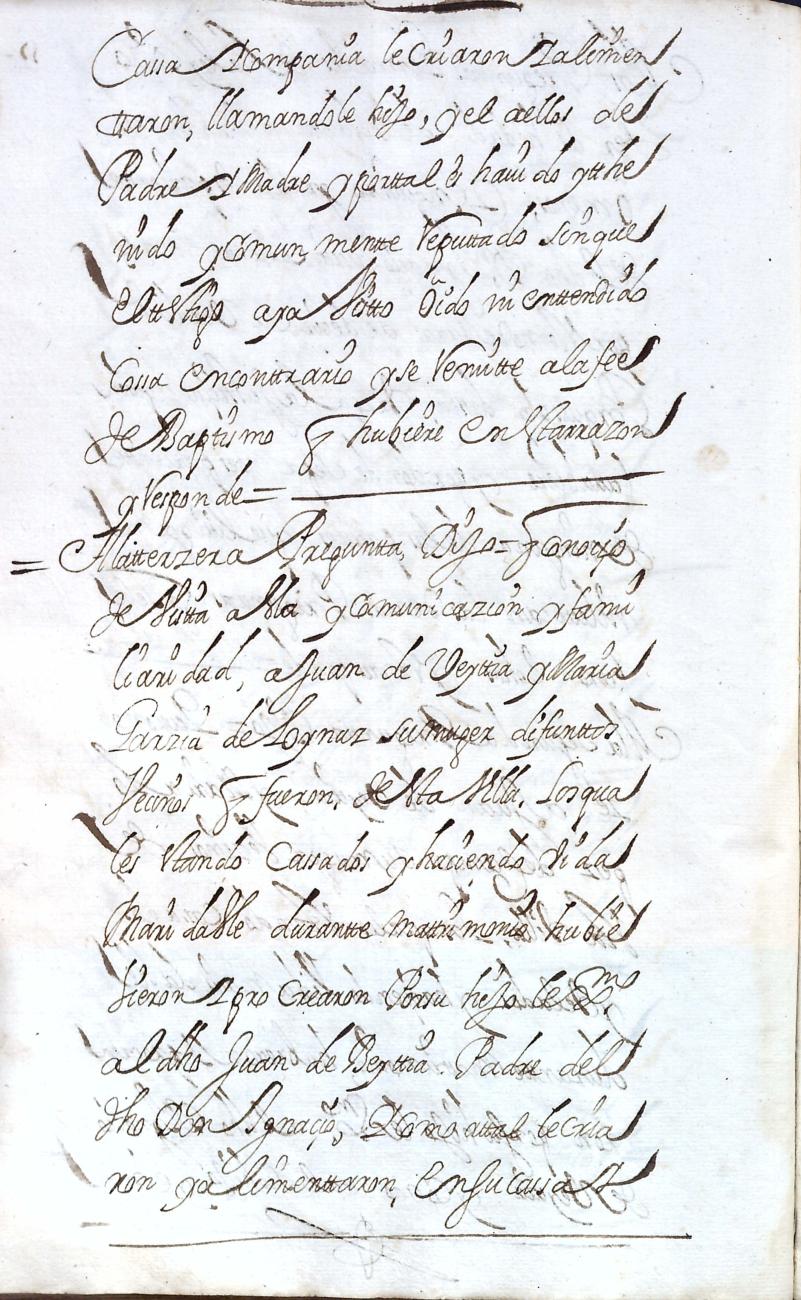 Cassa y Compania le criaron y alimen
ttaron, llamandole hijo, y el a ellos de
Padre y Madre y por ttal es havido y tthe
nido y Comun mentte Reputtado sin que
el tthgo aya Vistto Oido ni enttendido
Cossa en conttrario y se Remitte a la fee
de Baptismo q hubiere en Estta rrazon
y Responde =
= A la tterzera Pregunta, Dijo = q conocio
de Vistta abla y Comunicazion y fami
liaridad, a Juan de Veyttia y Maria
Garzia de Loynaz su muger difunttos
Vecinos q fueron, de Esta Villa, los qua
les Estando Cassados y haciendo Vida
Maridable durantte Mattrimonio hubie
Rieron y procrearon Por su hijo le Rmo
al dho Juan de Beyttia Padre del
dho Don Ignacio, y Como a ttal le cria
ron y alimenttaron, en su cassa y